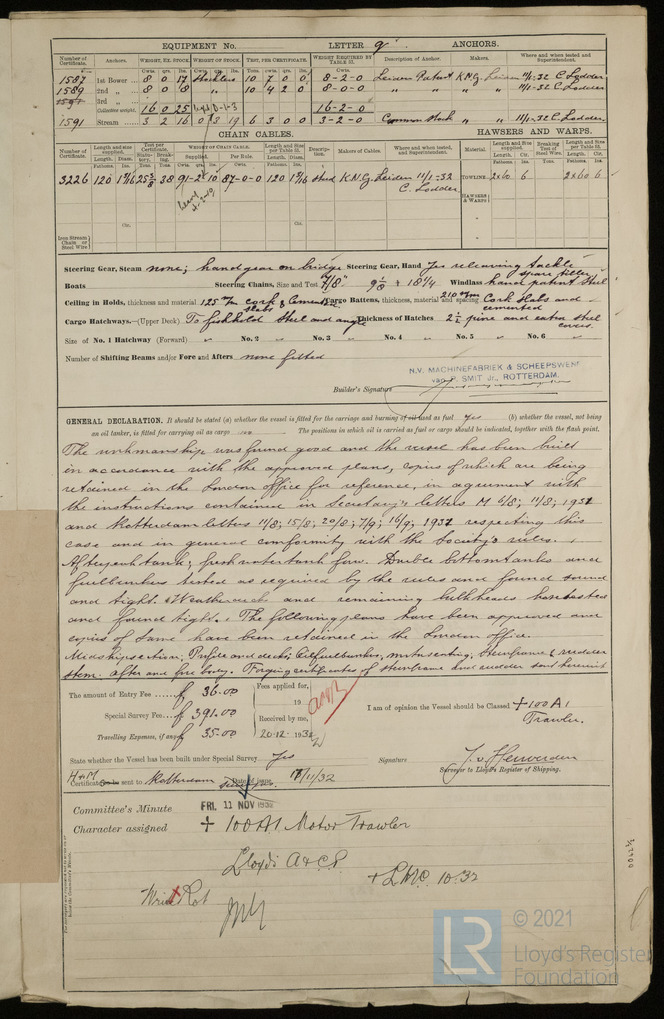 EQUIPMENT No. LETTER q. ANCHORS.
Number of Certificate. Anchors. WEIGHT, EX. STOCK. WEIGHT OF STOCK. TEST, PER CERTIFICATE. WEIGHT REQUIRED BY TABLE 31. Description of Anchor. Makers. Where and when tested and Superintendent.
Cwts. qrs. lbs. Cwts. qrs. lbs. Tons. cwts. qrs. lbs. Cwts.
1587 1st Bower 8 0 17 Stockless 10 7 0 0 8-2-0 Leiden Patent K.N.G. Leiden 11/1-32 C. Lodder
1589 2nd „ 8 0 8 „ „ 10 4 2 0 8-0-0 „ „ „ „ 11/1-32 C. Lodder
1591 3rd „
Collective weight. 16 0 25 16-2-0
1591 Stream 3 2 16 0 3 19 6 3 0 0 3-2-0 Common stock „ „ 11/1-32 C. Lodder
CHAIN CABLES. HAWSERS AND WARPS.
Number of Certificate. Length and size supplied. Test per Certificate. WEIGHT OF CHAIN CABLE. Length and Size per Table 31. Description. Makers of Cables. Where and when tested, and Superintendent. Material. Length and Size supplied. Breaking Test of Steel Wire. Length and Size per Table 31.
Fathoms. Diam. Statutory. Breaking. Supplied. Per Rule. Fathoms. Diam.
3226 120 1 3/16 25 3/8 38 91-2-10 87-0-0 120 1 3/16 stud K.N.G. Leiden 11/1-32 TOWLINE 2x60 6 2x60 6
C. Lodder
HAWSERS & WARPS
Iron Stream Chain or Steel Wire
Steering Gear, Steam none; hand gear on bridge Steering Gear, Hand Yes relieving tackle
spare tiller
Boats Steering Chains, Size and Test 7/8" 9 1/8 + 18 1/4 Windlass hand patent Steel
Ceiling in Holds, thickness and material 125 m/m cork slabs & cemented Cargo Battens, thickness, material and spacing 210 m/m Cork slabs and cemented
Cargo Hatchways.—(Upper Deck) To fishhold Steel and angle Thickness of Hatches 2 1/2 pine and extra steel covers.
Size of No. 1 Hatchway (Forward) „ No. 2 „ No. 3 „ No. 4 „ No. 5 „ No. 6 „
Number of Shifting Beams and/or Fore and Afters none fitted
N.V. MACHINEFABRIEK & SCHEEPSWERF
van P. SMIT Jr., ROTTERDAM.
Builder's Signature
GENERAL DECLARATION. It should be stated (a) whether the vessel is fitted for the carriage and burning of oil used as fuel yes (b) whether the vessel, not being
an oil tanker, is fitted for carrying oil as cargo no The positions in which oil is carried as fuel or cargo should be indicated, together with the flash point.
The workmanship was found good and the vessel has been built
in accordance with the approved plans, copies of which are being
retained in the London office for reference, in agreement with
the instructions contained in Secretary's letters M 6/8; 11/8; 1931
and Rotterdam letters 11/8; 15/8; 20/8; 7/9; 16/9; 1931 respecting this
case and in general conformity with the Society's rules.
Afterpeaktank; freshwatertank forw. Double bottom tanks and
fuelbunkers tested as required by the rules and found sound
and tight. Weatherdeck and remaining bulkheads hosetested
and found tight. The following plans have been approved and
copies of same have been retained in the London office.
Midshipsection, Profile and decks; Oilfuelbunkers, motorseating, Sternframe & rudder
stem, after and fore body. Forging certificates of sternframe and rudder sent herewith
The amount of Entry Fee f 36.00 Fees applied for,
19
Special Survey Fee f 391.00 Received by me,
Travelling Expenses, if any f 35.00 20-12-1932
I am of opinion the Vessel should be Classed +100A1
Trawler.
State whether the Vessel has been built under Special Survey Yes Signature J. v. Herwerden
Surveyor to Lloyd's Register of Shipping.
H & M Certificate to be sent to Rotterdam Date of issue 17/11/32
Committee's Minute FRI. 11 NOV 1932
Character assigned + 100A1 Motor Trawler
Lloyd's A & C P.
+ LMC 10.32
Write Rot
© 2021
LR Lloyd's Register
Foundation